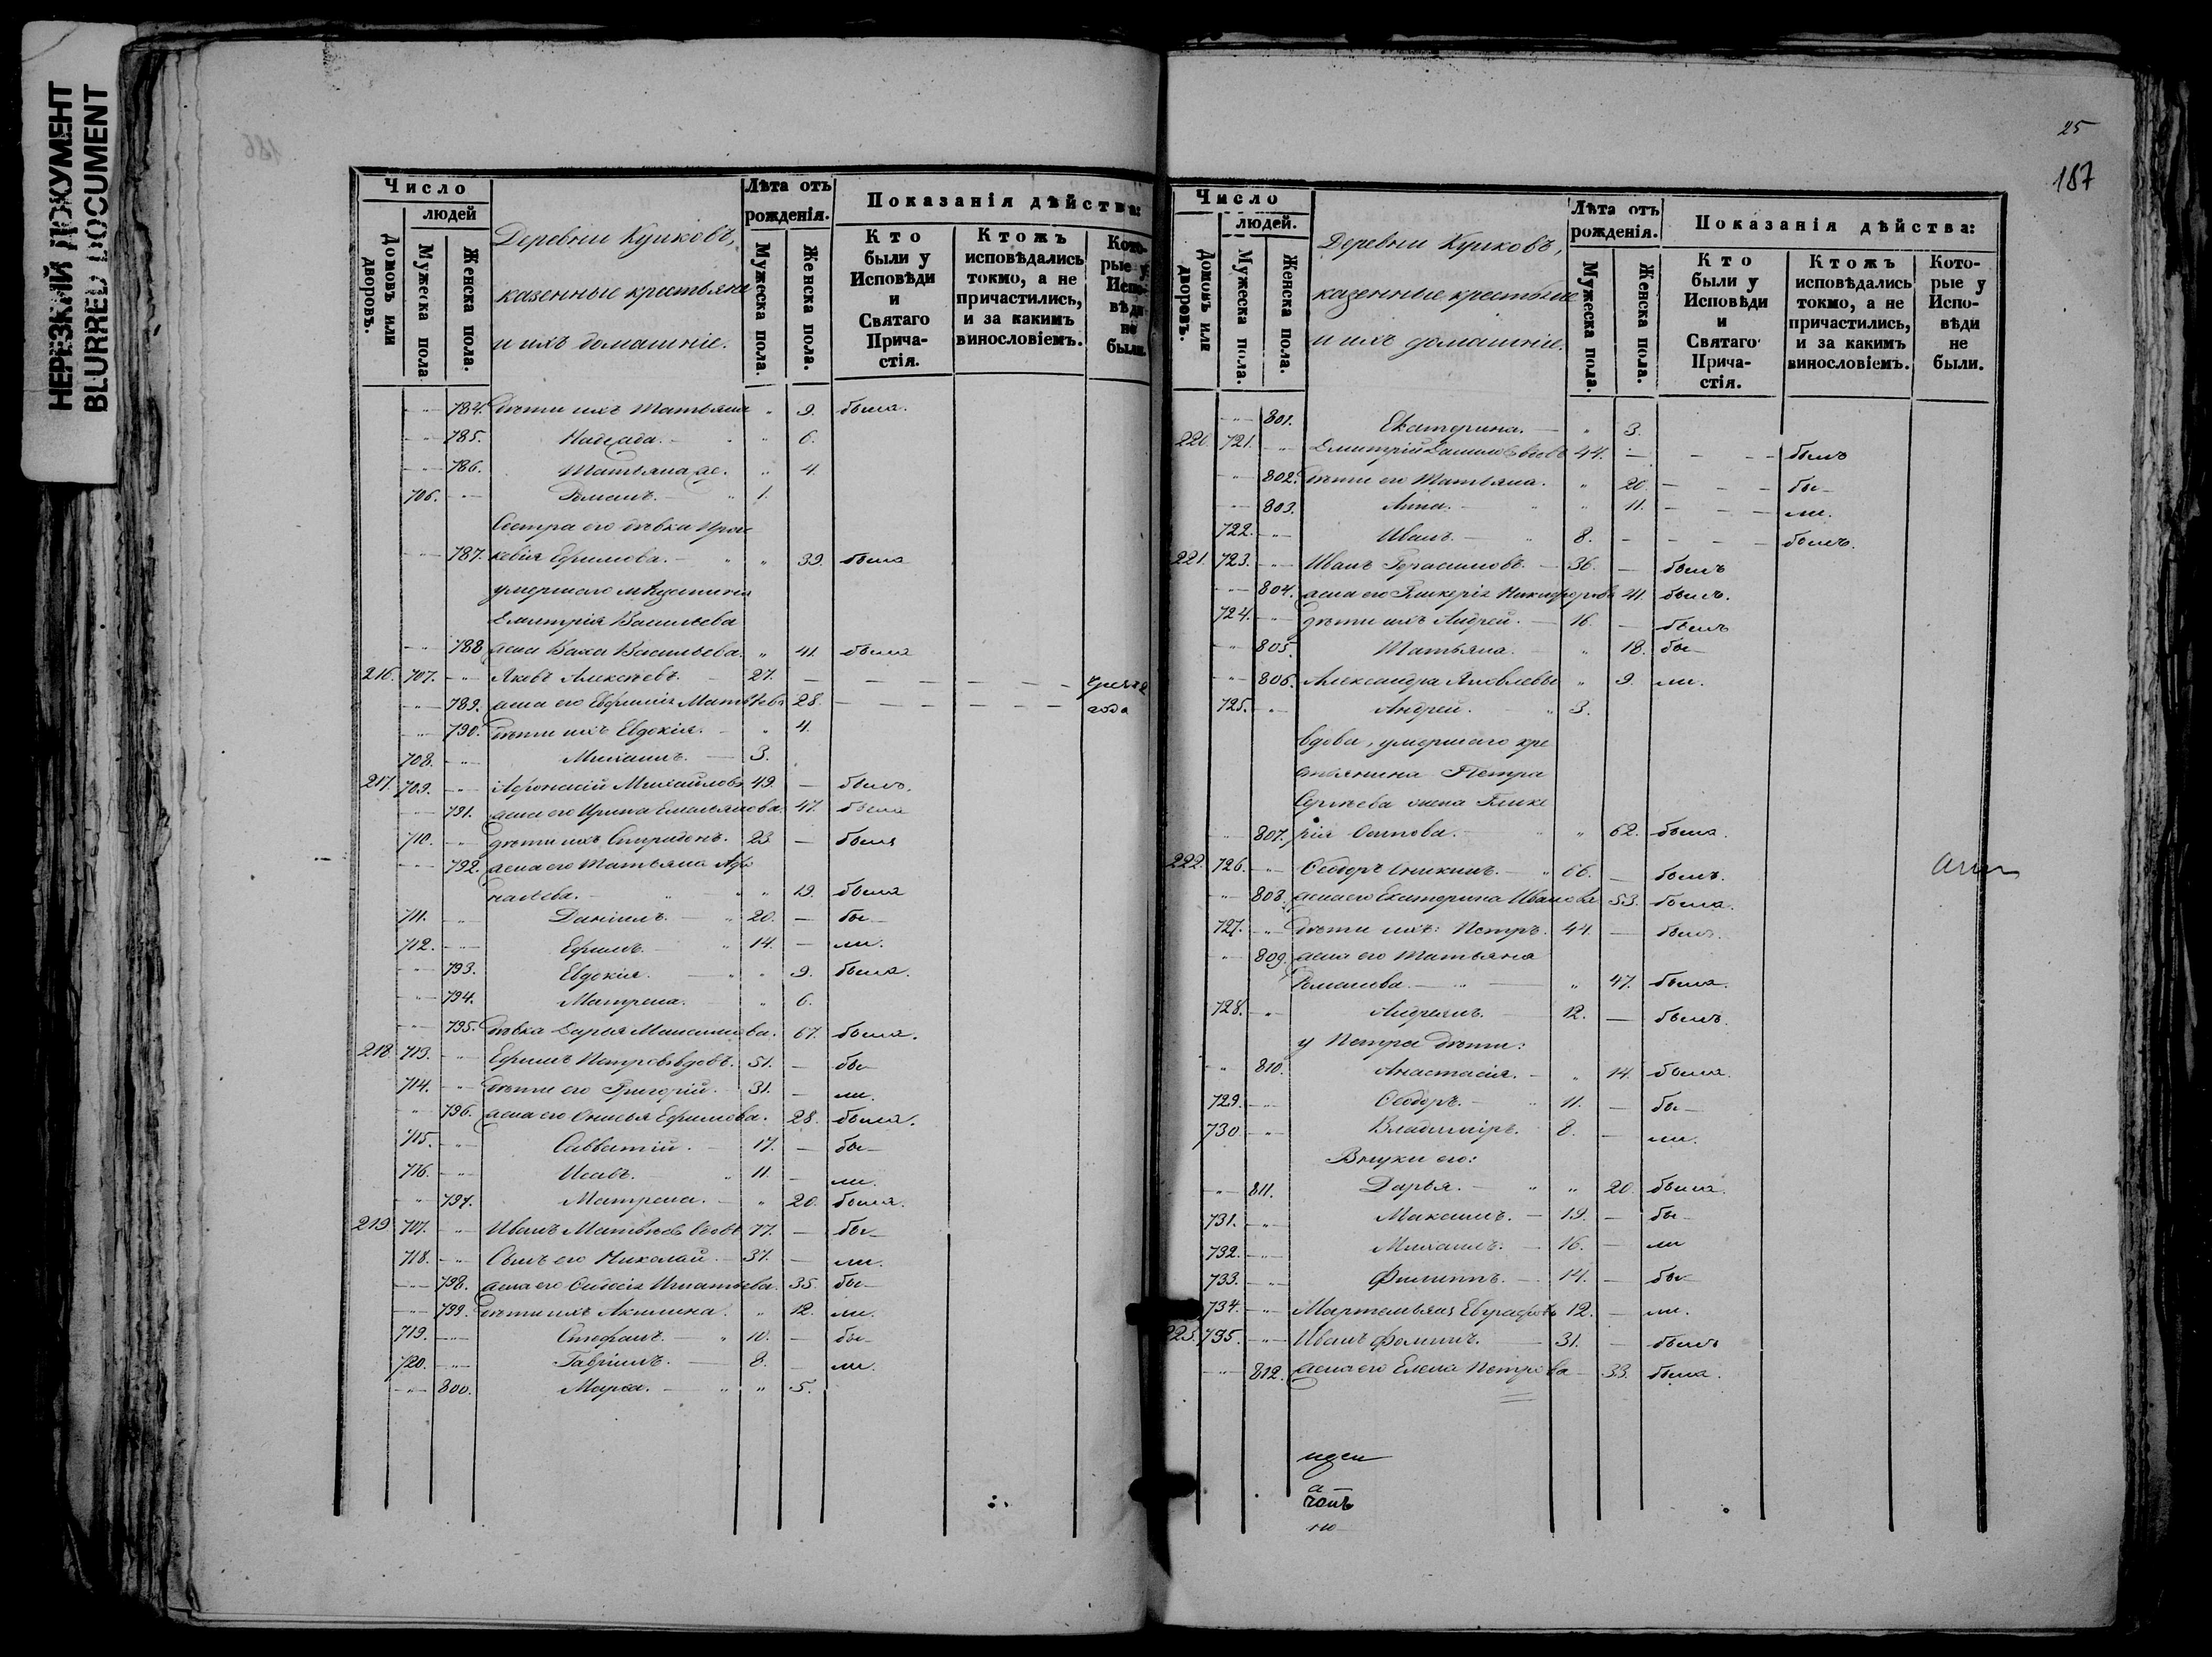 НЕРЕЗКИЙ ДОКУМЕНТ
BLURRED DOCUMENT
Число
людей
Домовъ или дворовъ.
Мужеска пола.
Женска пола.
Деревни Кушковъ,
казенные крестьяне
и ихъ домашніе.
Лѣта отъ рожденія.
Мужеска пола.
Женска пола.
Показанія дѣйства:
Кто были у Исповѣди и Святаго Прича-стія.
Ктожъ исповѣдались токмо, а не причастились, и за какимъ винословіемъ.
Кото-рые у Испо-вѣди не были.
784. дѣти ихъ Татьяна " 9. была.
785. Надежда. " 6.
786. Татьяна же. " 4.
706. Романъ. 1.
Сестра его дѣвка Прас
787. кевія Ефимова. " 39. была
умершаго
Дмитрія Васильева
788 жена Васильева. " 41. была
216. 707. Яковъ Алексѣевъ. 27. — чрезъ 2
789. жена его Евфимія Матвѣева 28. — года
790. дѣти ихъ Евдокія. " 4.
708. Михаилъ. 3.
217. 709. Афонасій Михайловъ 49. — былъ.
791. жена его Ирина Емельянова. 47. была
710. дѣти ихъ Спиридонъ. 23 — былъ
792. жена его Татьяна Афо
насьева. " 19. была
711. Даніилъ. 20. — бы-
712. Ефимъ. 14. — ли.
793. Евдокія. " 9. была.
794. Матрена. " 6.
795. дѣвка Дарья Максимова. 67. была.
218 713. Ефимъ Петровъ вдовъ. 51. — бы-
714. дѣти его Григорій. 31. — ли.
796. жена его Анисья Ефимова. 28. была.
715. Савватій. 17. — бы-
716. Исавъ. 11. — ли.
797. Матрена. " 20. была.
219 707. Иванъ Матвѣевъ вдовъ 77. — бы-
718. Сынъ его Николай 37. — ли.
798. жена его Игнатьева. 35. бы-
799. дѣти ихъ Акилина. " 12. ли.
719. Стефанъ. 10. — бы-
720. Гавріилъ. 8. — ли.
800. Марѳа. " 5.
25
187
Число
людей.
Домовъ или дворовъ.
Мужеска пола.
Женска пола.
Деревни Кушковъ,
казенные крестьяне
и ихъ домашніе.
Лѣта отъ рожденія.
Мужеска пола.
Женска пола.
Показанія дѣйства:
Кто были у Исповѣди и Святаго Прича-стія.
Ктожъ исповѣдались токмо, а не причастились, и за какимъ винословіемъ.
Кото-рые у Испо-вѣди не были.
801. Екатерина. " 3.
220. 721. Дмитрій Даниловъ вдовъ 44. — былъ
802. дѣти его Татьяна. " 20. — бы-
803. Анна. " 11. — ли.
722. Иванъ. 8. — былъ.
221. 723. Иванъ Герасимовъ. 36. — былъ
804. жена его Гликерія Никифорова 41. былъ.
724. дѣти ихъ Андрей. 16. — былъ
805. Татьяна. " 18. бы-
806. Александра Яковлева " 9. ли.
725. Андрей. 3.
вдова, умершаго кре
стьянина Петра
Сергѣева жена Глике
807. рія Осипова. " 62. была.
222. 726. Ѳеодоръ Аникинъ. 66. — былъ.
808. жена его Екатерина Иванова 53. была.
727. дѣти ихъ: Петръ. 44. — былъ.
809. жена его Татьяна
Романова. " 47. была.
728. Андреянъ. 12. — былъ.
у Петра дѣти:
810. Анастасія. " 14. была.
729. Ѳеодоръ. 11. — бы-
730 Владиміръ. 8. — ли.
Внуки его:
811. Дарья. " 20. была.
731. Максимъ. 19. — бы-
732. Михаилъ. 16. — ли
733. Филиппъ. 14. — бы-
734. Мартемьянъ Евграфовъ 12. — ли.
223. 735. Иванъ Фоминъ. 31. — былъ
812. жена его Елена Петрова 33. была.